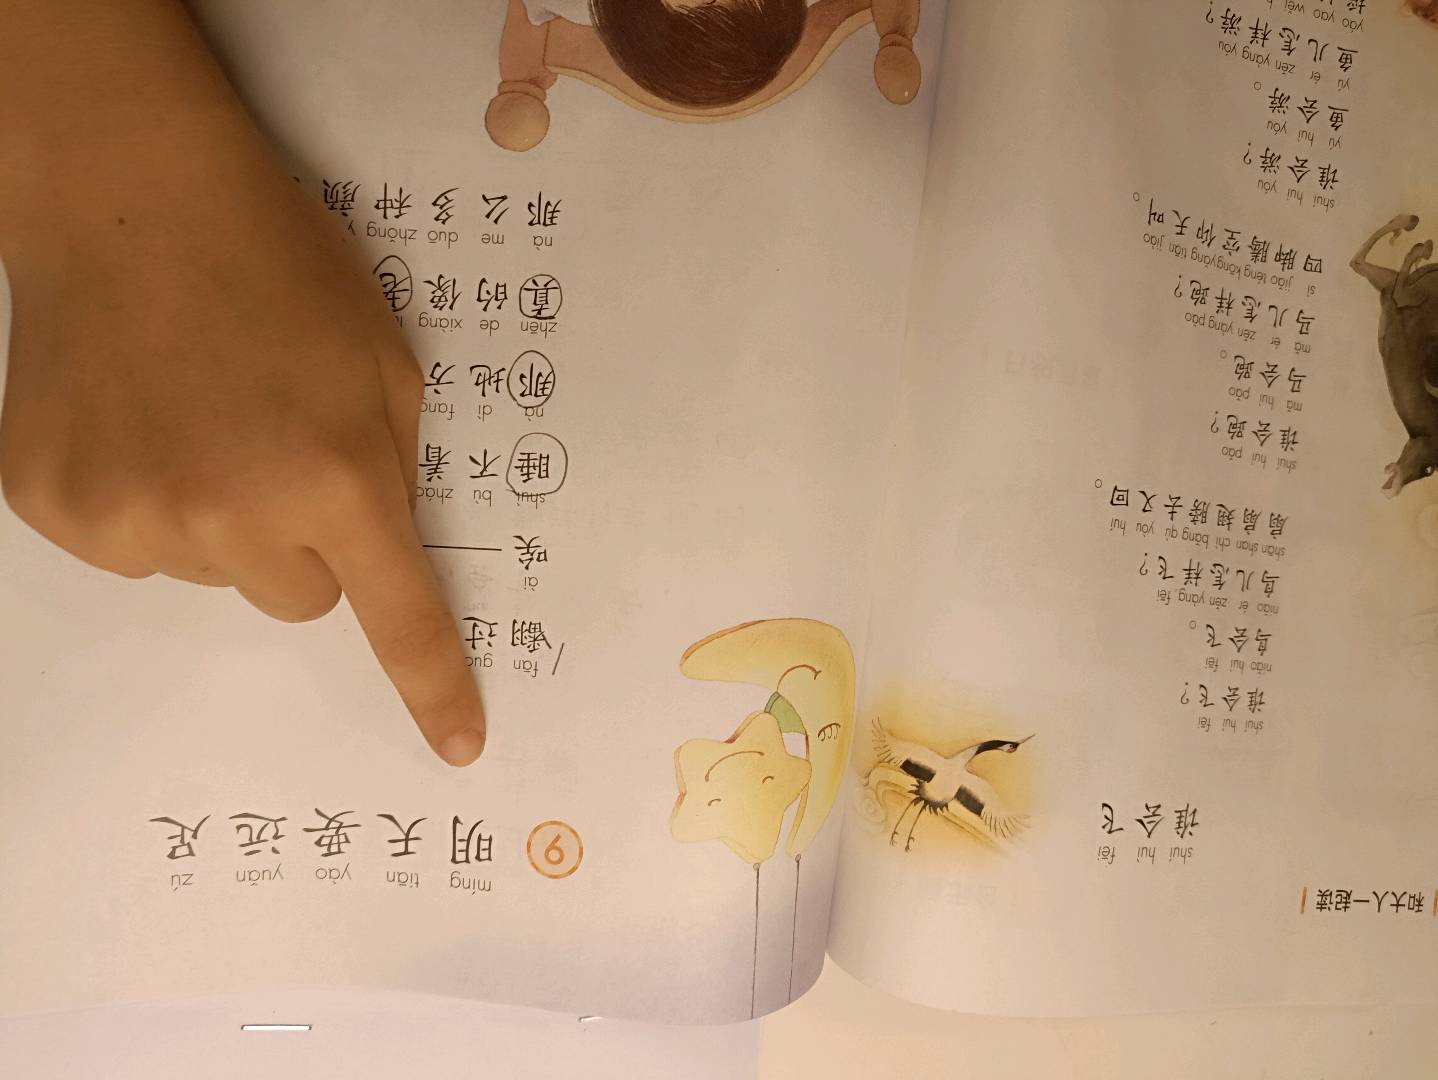 和大人一起读
shuí huì fēi
谁会飞
shuí huì fēi
谁会飞？
niǎo huì fēi
鸟会飞。
niǎo ér zěn yàng fēi
鸟儿怎样飞？
shān shan chì bǎng qù yòu huí
扇扇翅膀去又回。
shuí huì pǎo
谁会跑？
mǎ huì pǎo
马会跑。
mǎ ér zěn yàng pǎo
马儿怎样跑？
sì jiǎo téng kōng yǎng tiān jiào
四脚腾空仰天叫。
shuí huì yóu
谁会游？
yú huì yóu
鱼会游。
yú ér zěn yàng yóu
鱼儿怎样游？
yáo yao wěi
míng tiān yào yuǎn zú
9 明天要远足
fān
翻过
ài
唉——
shuì bù zháo
睡不着
nà dì fang
那地方
zhēn de xiàng
真的像老
nà me duō zhǒng
那么多种颜